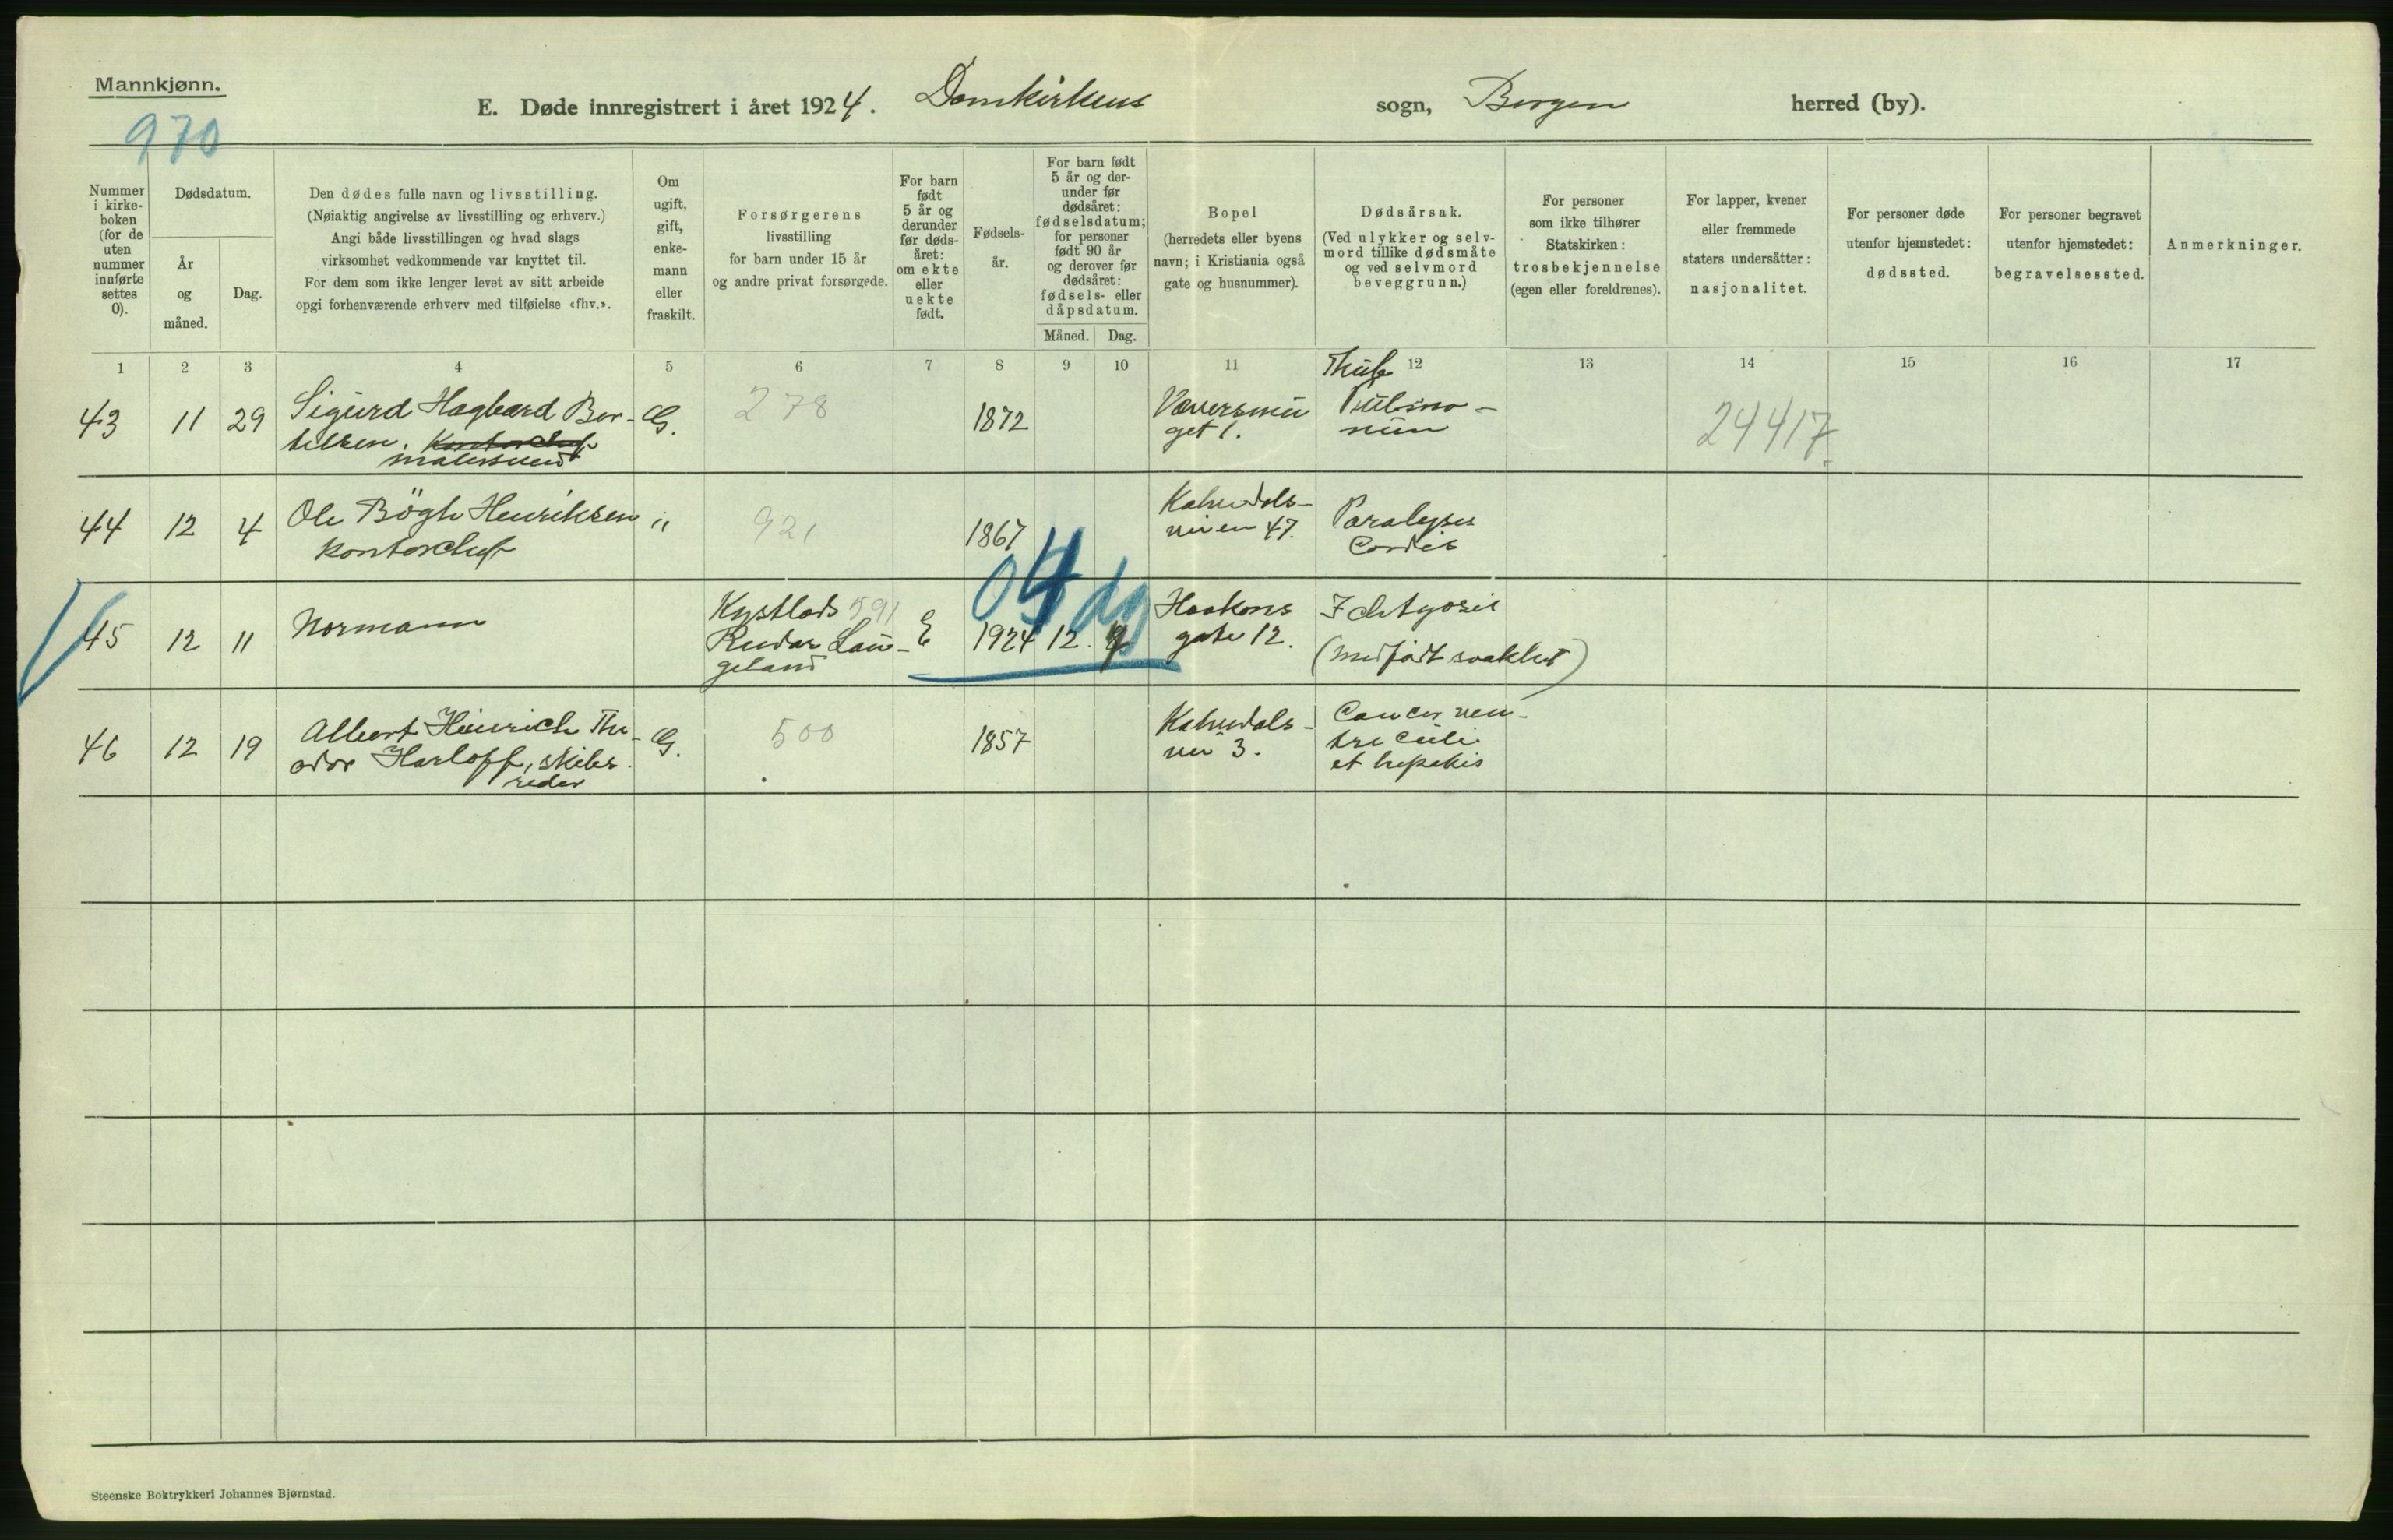 Mannkjønn.
970
E. Døde innregistrert i året 1924. Domkirkens sogn, Bergen herred (by).
Nummer i kirke-boken (for de uten nummer innførte settes 0).
Dødsdatum.
År og måned.
Dag.
Den dødes fulle navn og livsstilling.
(Nøiaktig angivelse av livsstilling og erhverv.)
Angi både livsstillingen og hvad slags
virksomhet vedkommende var knyttet til.
For dem som ikke lenger levet av sitt arbeide
opgi forhenværende erhverv med tilføielse «fhv.».
Om ugift, gift, enke-mann eller fraskilt.
Forsørgerens
livsstilling
for barn under 15 år
og andre privat forsørgede.
For barn født 5 år og derunder før døds-året: om ekte eller uekte født.
Fødsels-år.
For barn født 5 år og der-under før dødsåret: fødselsdatum; for personer født 90 år og derover før dødsåret: fødsels- eller dåpsdatum.
Måned. Dag.
Bopel
(herredets eller byens
navn; i Kristiania også
gate og husnummer).
Dødsårsak.
(Ved ulykker og selv-
mord tillike dødsmåte
og ved selvmord
beveggrunn.)
For personer
som ikke tilhører
Statskirken:
trosbekjennelse
(egen eller foreldrenes).
For lapper, kvener
eller fremmede
staters undersåtter:
nasjonalitet.
For personer døde
utenfor hjemstedet:
dødssted.
For personer begravet
utenfor hjemstedet:
begravelsessted.
Anmerkninger.
1 2 3 4 5 6 7 8 9 10 11 12 13 14 15 16 17
43 11 29 Sigurd Hagbard Ber- G. 278 1872
telsen. Kontorchef
malersvend
get 1.
24417
44 12 4 Ole Bögh Henriksen " 921 1867 Kalvedals-
kontorchef
veien 47. Paralysis
Cordis
04 dg
45 12 11 Normann Kystlods 591 E 1924 12. 7 Haakons
Reidar Lau-
geland
gate 12.
(medfødt svakhet)
46 12 19 Albert Heinrich The- G. 500 1857 Kalvedals-
odor Harloff, skibs-
reder
vei 3. Cancer ven-
triculi
et hepatis
Steenske Boktrykkeri Johannes Bjørnstad.